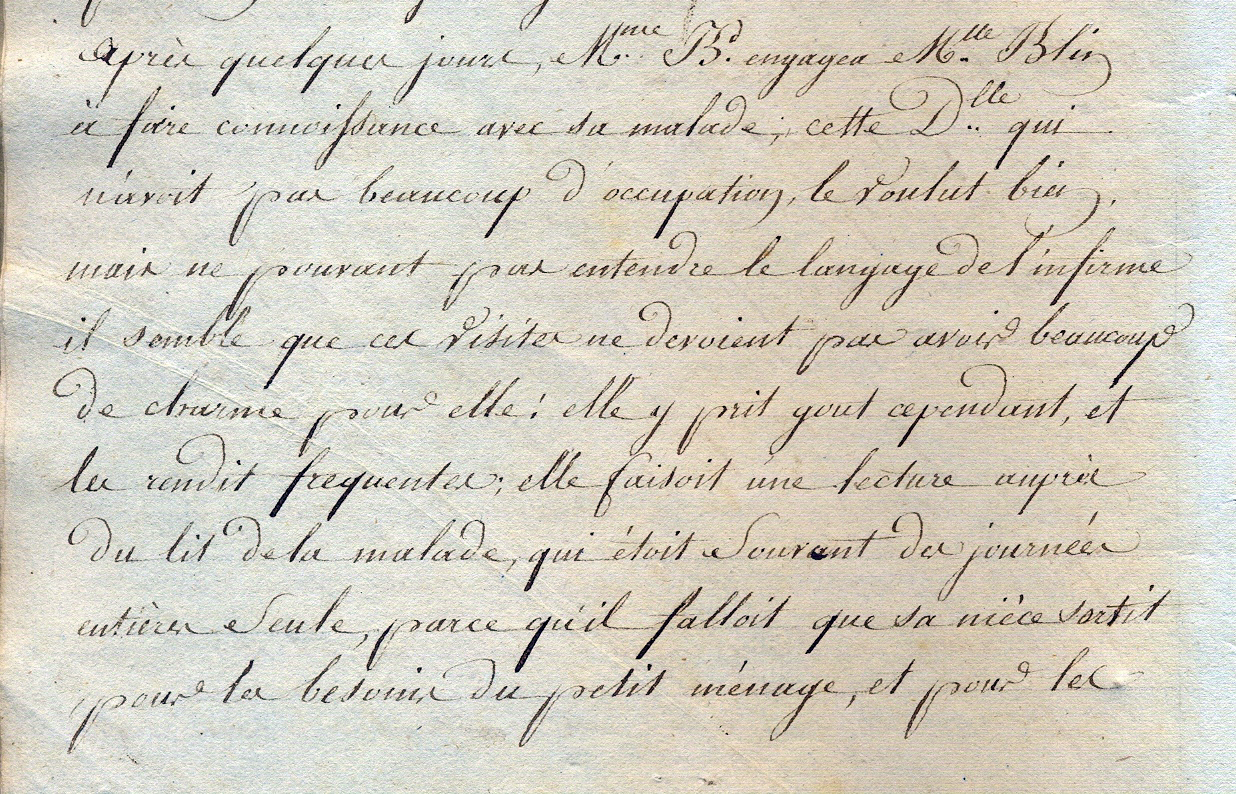 après quelques jours, Mme Bd. engagea Mlle Blin
à faire connoissance avec sa malade; cette Dlle qui
n'avoit pas beaucoup d'occupation, le voulut bien,
mais ne pouvant pas entendre le langage de l'infirme
il semble que ces visites ne devoient pas avoir beaucoup
de charme pour elle: elle y prit gout cependant, et
les rendit frequentes; elle faisoit une lecture auprès
du lit de la malade, qui étoit souvent des journées
entières seule, parce qu'il falloit que sa nièce sortit
pour les besoins du petit ménage, et pour les